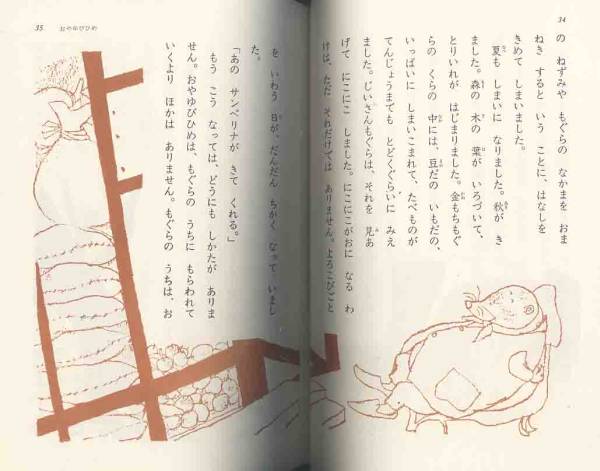 34
の ねずみや もぐらの なかまを おま
ねき すると いう ことに、はなしを
きめて しまいました。
夏も しまいに なりました。秋が き
ました。森の 木の 葉が いろづいて、
とりいれが はじまりました。金もちもぐ
らの くらの 中には、豆だの いもだの、
いっぱいに しまいこまれて、たべものが
てんじょうまでも とどくぐらいに みえ
ました。じいさんもぐらは、それを 見あ
げて にこにこ しました。にこにこがおに なる わ
けは、ただ それだけでは ありません。よろこびごと
35 おやゆびひめ
を いわう 日が、だんだん ちかく なって いまし
た。
「あの サンベリナが きて くれる。」
もう こう なっては、どうにも しかたが ありま
せん。おやゆびひめは、もぐらの うちに もらわれて
いくより ほかは ありません。もぐらの うちは、お